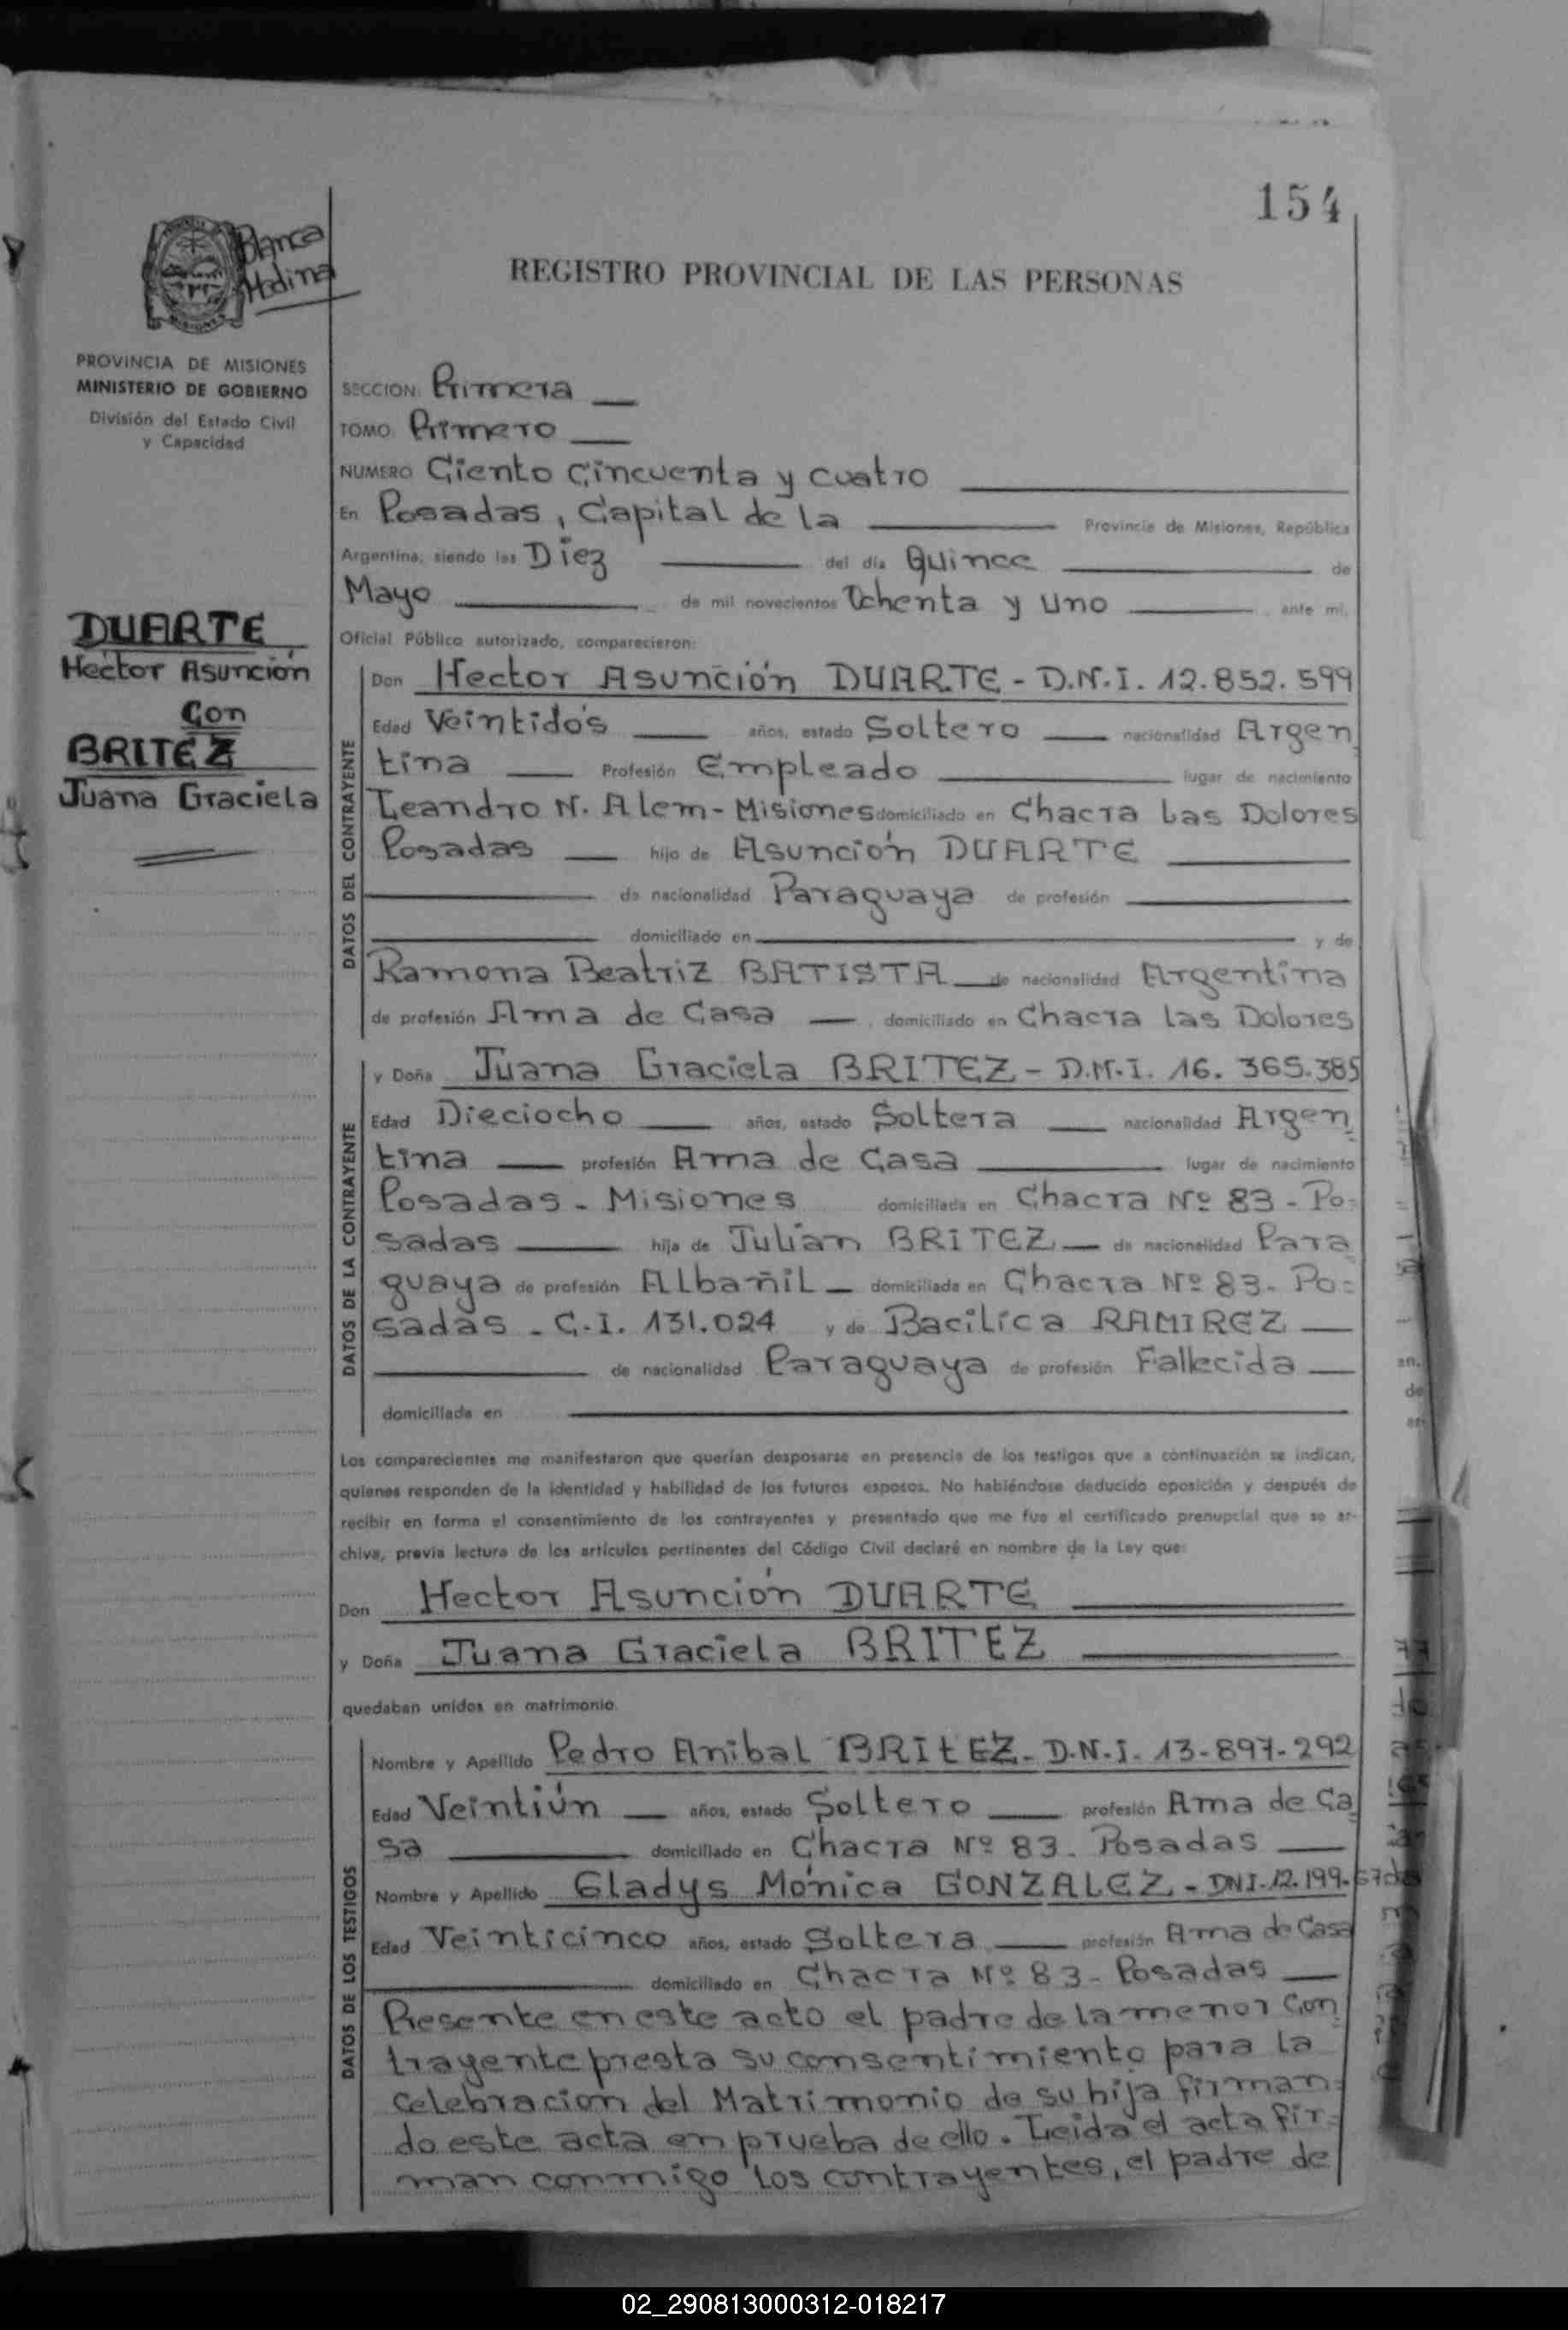 154
Blanca
Medina
REGISTRO PROVINCIAL DE LAS PERSONAS
MISIONES
PROVINCIA DE MISIONES
MINISTERIO DE GOBIERNO
División del Estado Civil
y Capacidad
DUARTE
Hector Asunción
Con
BRITEZ
Juana Graciela
SECCION: Primera
TOMO: Primero
NUMERO Ciento Cincuenta y cuatro
En Posadas, Capital de la Provincia de Misiones, República
Argentina, siendo las Diez del día Quince de
Mayo de mil novecientos Ochenta y uno ante mi,
Oficial Público autorizado, comparecieron:
DATOS DEL CONTRAYENTE
Don Hector Asunción DUARTE - D.N.I. 12.852.599
Edad Veintidós años, estado Soltero nacionalidad Argen
tina Profesión Empleado lugar de nacimiento
Leandro N. Alem - Misiones domiciliado en Chacra Las Dolores
Posadas hijo de Asunción DUARTE
de nacionalidad Paraguaya de profesión
domiciliado en y de
Ramona Beatriz BATISTA de nacionalidad Argentina
de profesión Ama de Casa domiciliado en Chacra las Dolores
DATOS DE LA CONTRAYENTE
y Doña Juana Graciela BRITEZ - D.N.I. 16.365.385
Edad Dieciocho años, estado Soltera nacionalidad Argen
tina profesión Ama de Casa lugar de nacimiento
Posadas - Misiones domiciliada en Chacra Nº 83 - Po=
sadas hija de Julian BRITEZ de nacionalidad Para
guaya de profesión Albañil domiciliada en Chacra Nº 83 - Po=
sadas - C.I. 131.024 y de Bacilica RAMIREZ
de nacionalidad Paraguaya de profesión Fallecida
domiciliada en
Los comparecientes me manifestaron que querían desposarse en presencia de los testigos que a continuación se indican,
quienes responden de la identidad y habilidad de los futuros esposos. No habiéndose deducido oposición y después de
recibir en forma el consentimiento de los contrayentes y presentado que me fue el certificado prenupcial que se ar-
chiva, previa lectura de los artículos pertinentes del Código Civil declaré en nombre de la Ley que:
Don Hector Asunción DUARTE
y Doña Juana Graciela BRITEZ
quedaban unidos en matrimonio.
DATOS DE LOS TESTIGOS
Nombre y Apellido Pedro Anibal BRITEZ - D.N.I. 13-897-292
Edad Veintiún años, estado Soltero profesión Ama de Ca
sa domiciliado en Chacra Nº 83 - Posadas
Nombre y Apellido Gladys Mónica GONZALEZ - DNI. 12.199.
Edad Veinticinco años, estado Soltera profesión Ama de Casa
domiciliado en Chacra Nº 83 - Posadas
Presente en este acto el padre de la menor con
trayente presta su consentimiento para la
celebración del Matrimonio de su hija firman=
do este acta en prueba de ello. Leida el acta fir=
man conmigo los contrayentes, el padre de
02_290813000312-018217